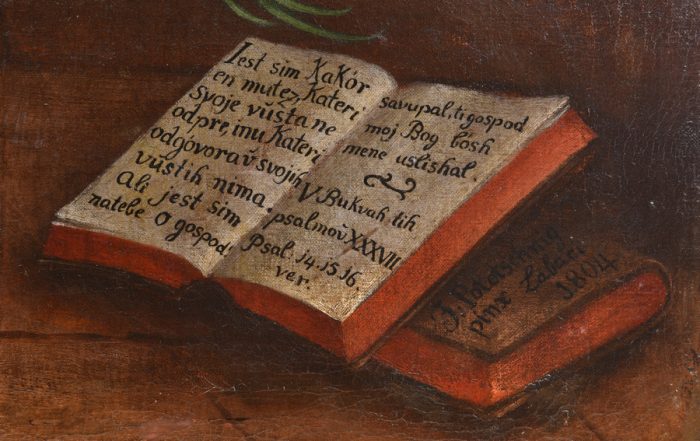 Iest sim KaKór
en mutez, Kateri
Svoje vùšta ne
odpre, inu Kateri
odgóvora v svojih
vùstih nima.
Ali jest sim
natebe O gospod:
savupal, ti gospod
moj Bog bósh
mene uslishal.
V BuKvah tih
psalmov XXXVII
Psal. 14. 15. 16.
ver.
pinx
1804